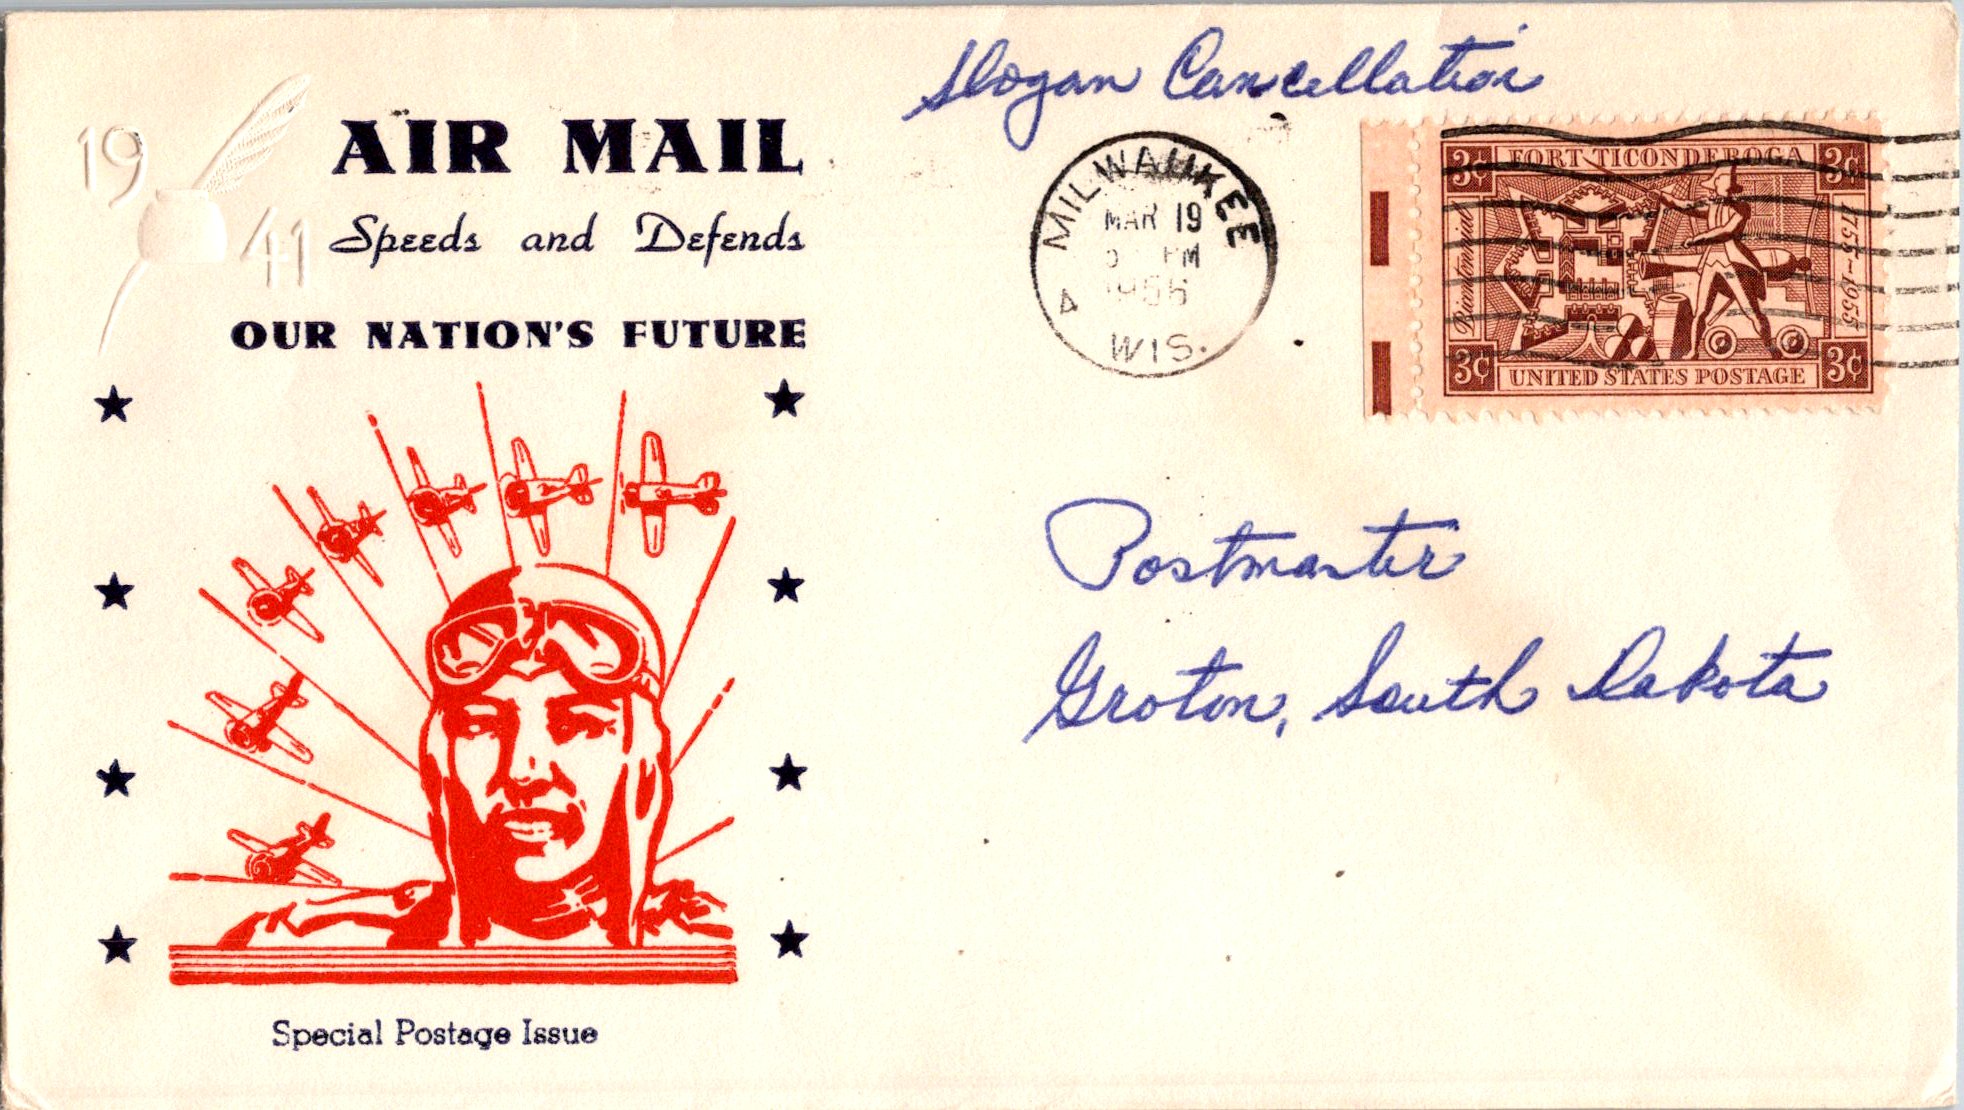 Slogan Cancellation
19 41
AIR MAIL
Speeds and Defends
OUR NATION'S FUTURE
MILWAUKEE
MAR 19
PM
1956
WIS.
3¢ FORT TICONDEROGA 3¢
Bicentennial
1755-1955
3¢ UNITED STATES POSTAGE 3¢
Postmaster
Groton, South Dakota
Special Postage Issue